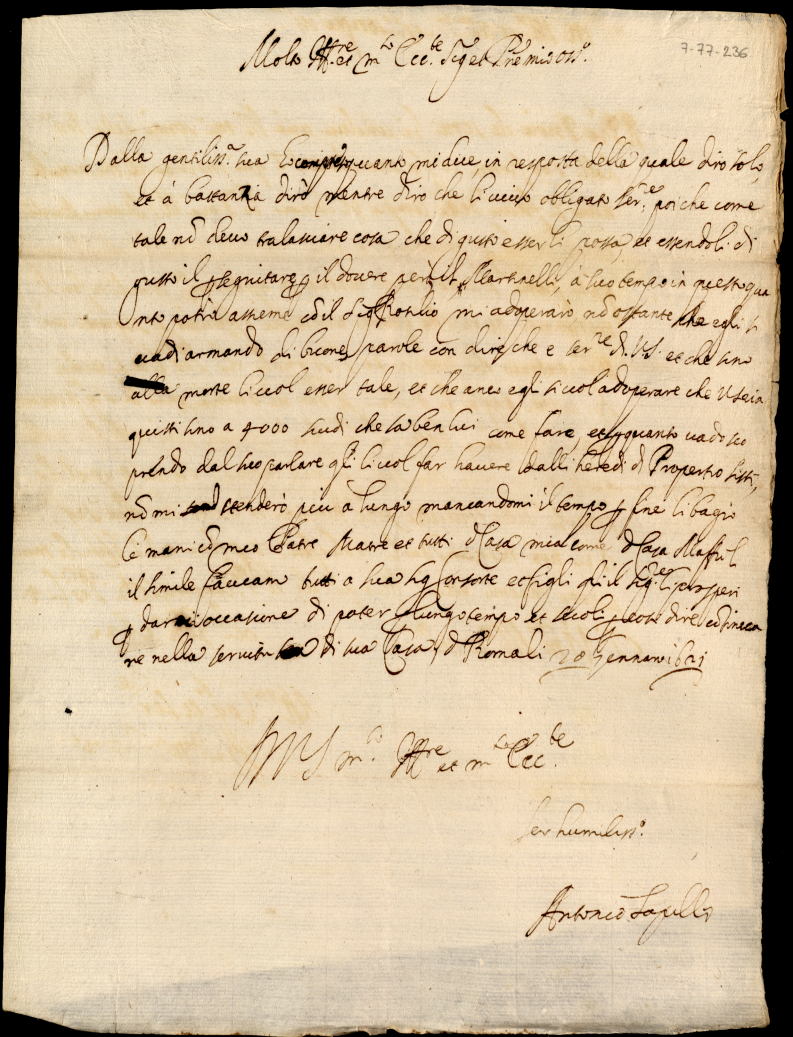 7-77-236
Molto Ill.re et m.to Ecc.te Sig.r et P.rone mio oss.o
Dalla gentiliss.a sua quanto mi dice, in resposta della quale diro solo,
et à bastanza dirò mentre diro che li vivo obligato ser.e poiche come
tale nõ devo tralasciare cosa che di gusto esserli possa, et essendoli di
gusto il seguitare il dovere il Martinelli, à suo tempo in questo qua
nto potrò assieme cõ il Sig.r Rotilio mi adoperarò nõ ostante che egli si
vadi armando di bone parole con dire che e ser.re di V.S. et che sino
alla morte li vol esser tale, et che anco egli si vol adoperare che V.S. sia
quisti sino a 4000 scudi che sa ben lui come fare, et quanto vado sco
prendo dal suo parlare gli li vol far havere dalli heredi di Propertio
nõ mi stenderò piu a lungo mancandomi il tempo p fine li bagio
le mani cõ meo Patre Matre et tutti d Casa mia come d Casa Maffei
il simile facciam tutti a sua Sig. Consorte et figli gli il Sig.re li prosperi
p darmi occasione di poter lungo tempo et secoli p cosi dire cõtinua
re nella servitu di sua Casa, d Roma li 20 Gennaro 1621
D V S m.to Ill.re et m.to Ecc.te
Ser humiliss.o
Antonio